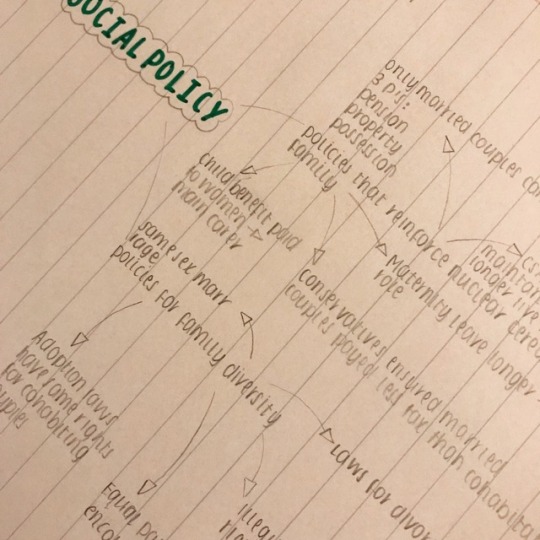 SOCIAL POLICY
only married couples can
3 P's:
pension
property
possession
policies that reinforce nuclear
family
child benefit paid
to women →
main carer
main
longer live
Maternity leave longer
role
conservatives ensured married
couples payed less tax than
same sex marr
iage
policies for family diversity
Adoption laws
have same rights
for cohabiting
Laws for
Equal